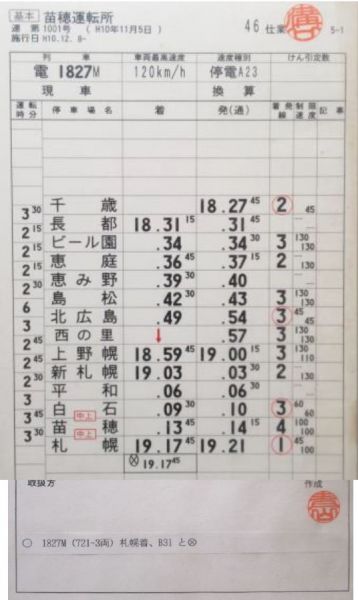 基本 苗穂運転所
運 第 1001号 ( H10年11月5日 )
施行日 H10. 12. 8-
46 仕業
5-1
列 車 車両最高速度 速度種別 けん引定数
電 1827M 120km/h 停電A23
現 車 換 算
運転時分 停 車 場 名 着 発(通) 着発線 制限速度 記 事
千 歳 18.27 45 2 45
3 30
長 都 18.31 15 .31 45
2 15
ビール園 .34 .34 30 3 130 130
2 15
恵 庭 .36 45 .37 15 2 130
2 15
恵み野 .39 30 .40
2 30
島 松 .42 30 .43 3 130 130
6
北広島 .49 .54 3 45 45
3
西の里 ↓ .57 3 130 130
2 45
上野幌 18.59 45 19.00 15 3 130 110
2 45
新札幌 19.03 19.03 30 2 130
2 30
平 和 .06 .06 30
3
白 石 .09 30 .10 3 60 60
3 45 中上
苗 穂 .13 45 .14 15 4 100
3 30 中上
札 幌 19.17 45 19.21 1 45 100
⊗ 19.17 45
取扱方 作成
○ 1827M (721-3両) 札幌着、B31 と⊗